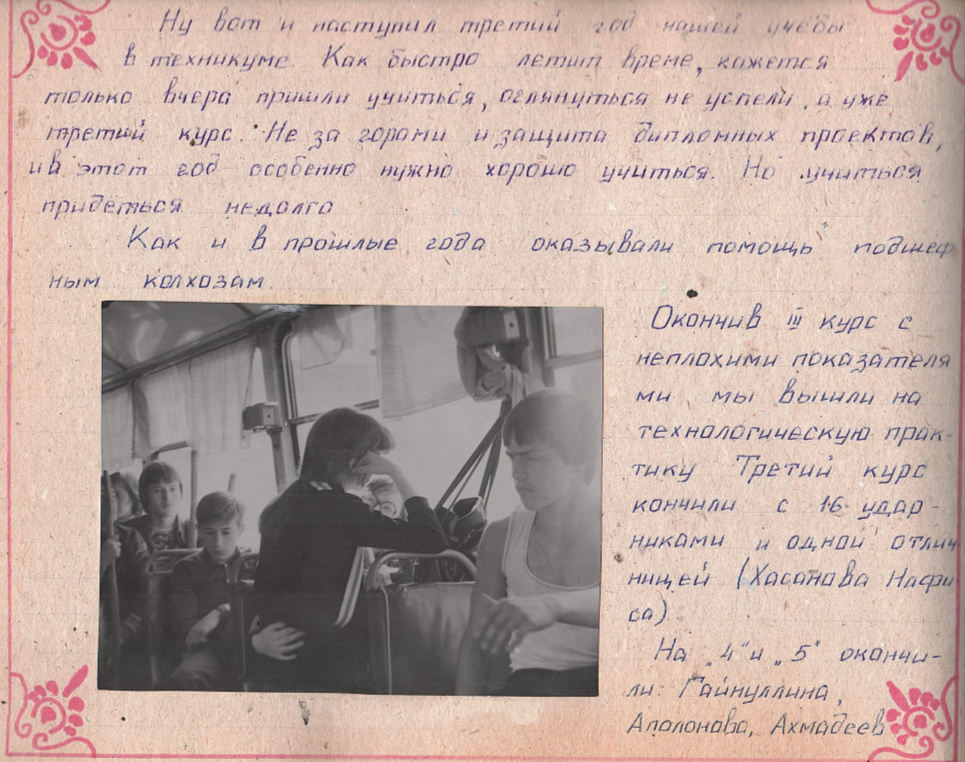 Ну вот и наступил третий год нашей учёбы
в техникуме. Как быстро летит време, кажется
только вчера пришли учиться, оглянуться не успели, а уже
третий курс. Не за горами и защита дипломных проектов,
и в этот год особенно нужно хорошо учиться. Но учиться
придёться недолго
Как и в прошлые года оказывали помощь подшеф
ным колхозам.
Окончив III курс с
неплохими показателя
ми мы вышли на
технологическую прак-
тику Третий курс
кончили с 16 удар-
никами и одной отлич
ницей (Хасанова Нафи
са)
На „4" и „5" окончи-
ли: Гайнуллина,
Аполонова, Ахмадеев